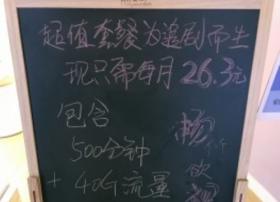 超值套餐为追剧而生
现只需每月26.3元
包含
500分钟
+40G流量
杨
欣